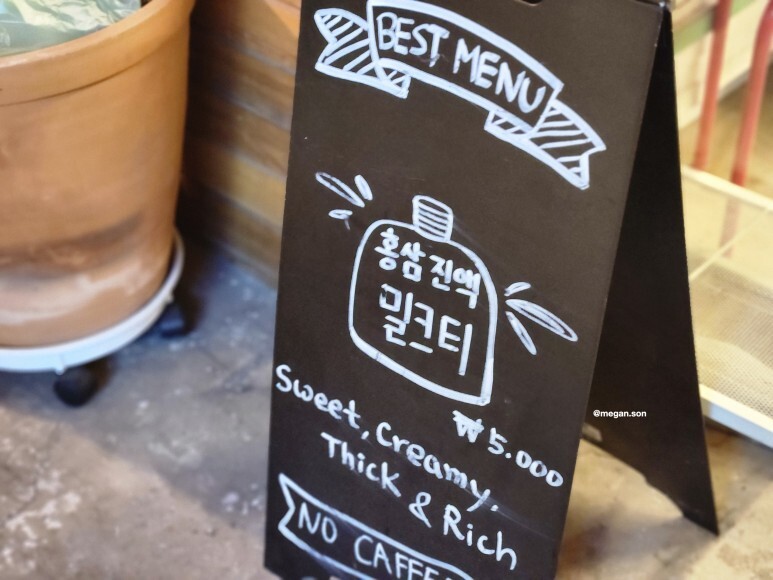 BEST MENU
홍삼진액
밀크티
₩5.000
Sweet, Creamy,
Thick & Rich
NO
@megan.son